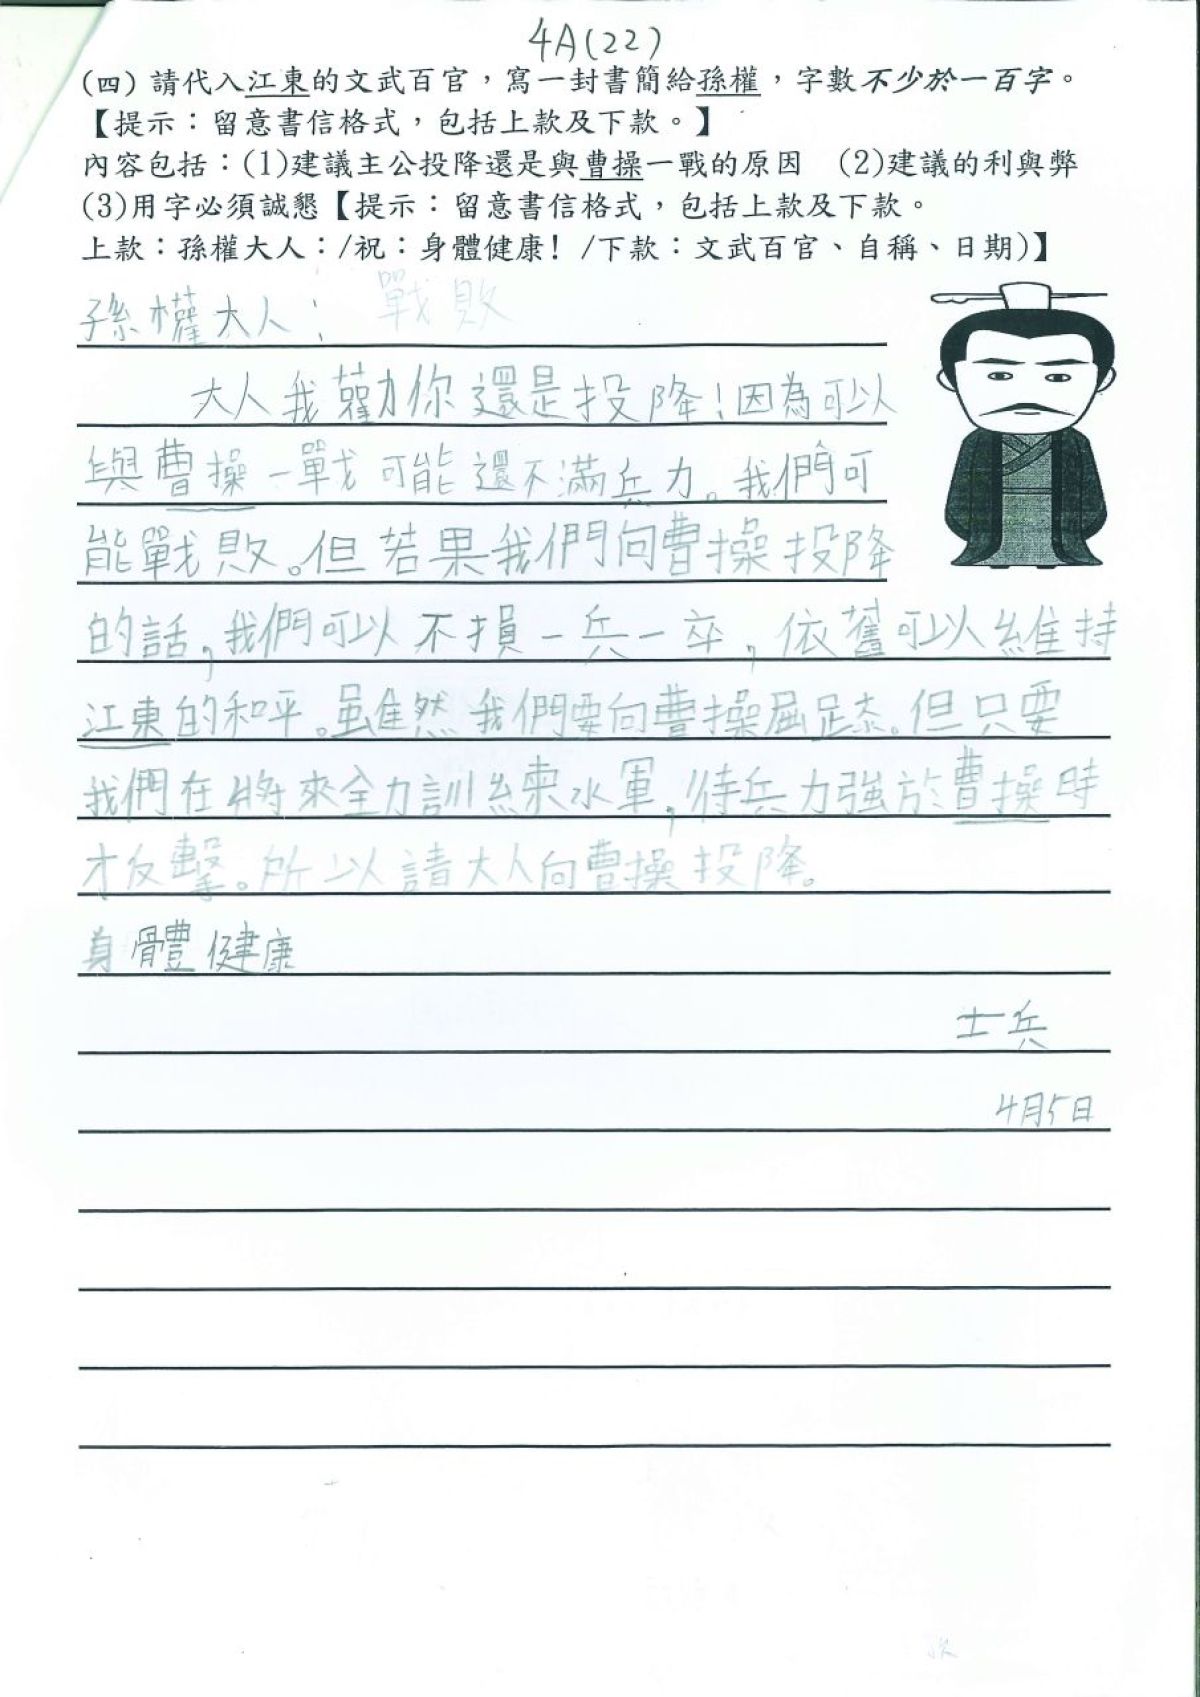 4A(22)
(四) 請代入江東的文武百官，寫一封書簡給孫權，字數不少於一百字。
【提示：留意書信格式，包括上款及下款。】
內容包括：(1)建議主公投降還是與曹操一戰的原因 (2)建議的利與弊
(3)用字必須誠懇【提示：留意書信格式，包括上款及下款。
上款：孫權大人：/祝：身體健康! /下款：文武百官、自稱、日期)】
孫權大人： 戰敗
大人我勸你還是投降!因為可以
與曹操一戰可能還不滿兵力。我們可
能戰敗。但若果我們向曹操投降
的話，我們可以不損一兵一卒，依舊可以維持
江東的和平。雖然我們要向曹操屈足膝。但只要
我們在將來全力訓練水軍，待兵力強於曹操時
才反擊。所以請大人向曹操投降。
身體健康
士兵
4月5日